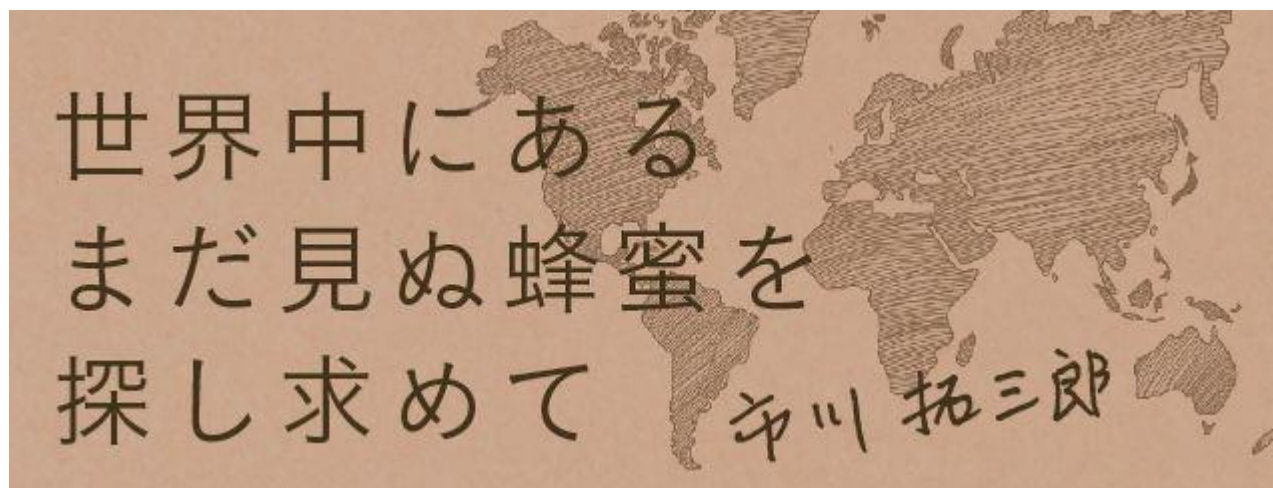 世界中にある
まだ見ぬ蜂蜜を
探し求めて
市川 拓三郎